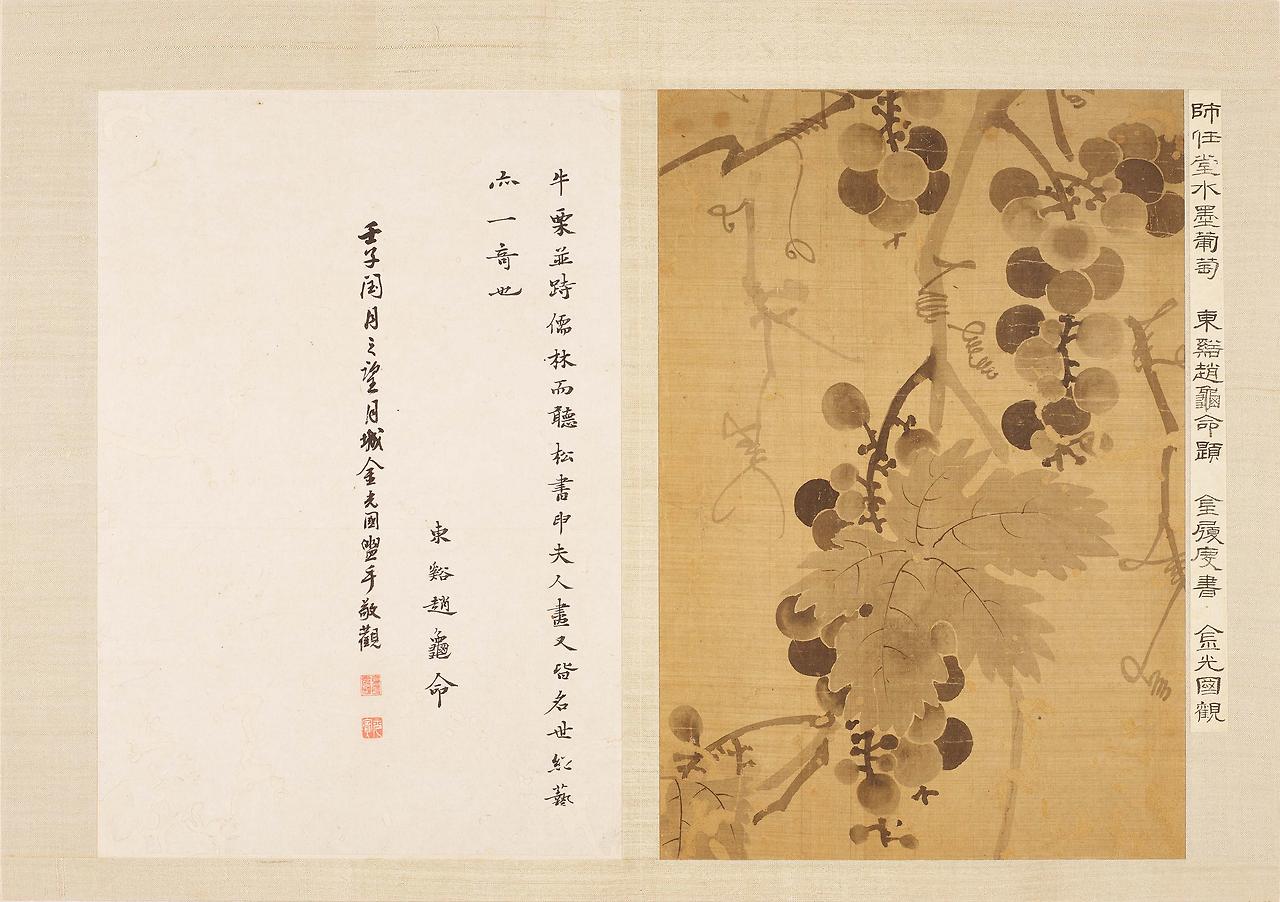 師任堂水墨葡萄 東谿趙龜命題 金履度書 金光國觀
牛栗並跱儒林而聽松書申夫人畫又皆名世絕藝
亦一奇也
東谿趙龜命
壬子閏月之望月城金光國盥手敬觀